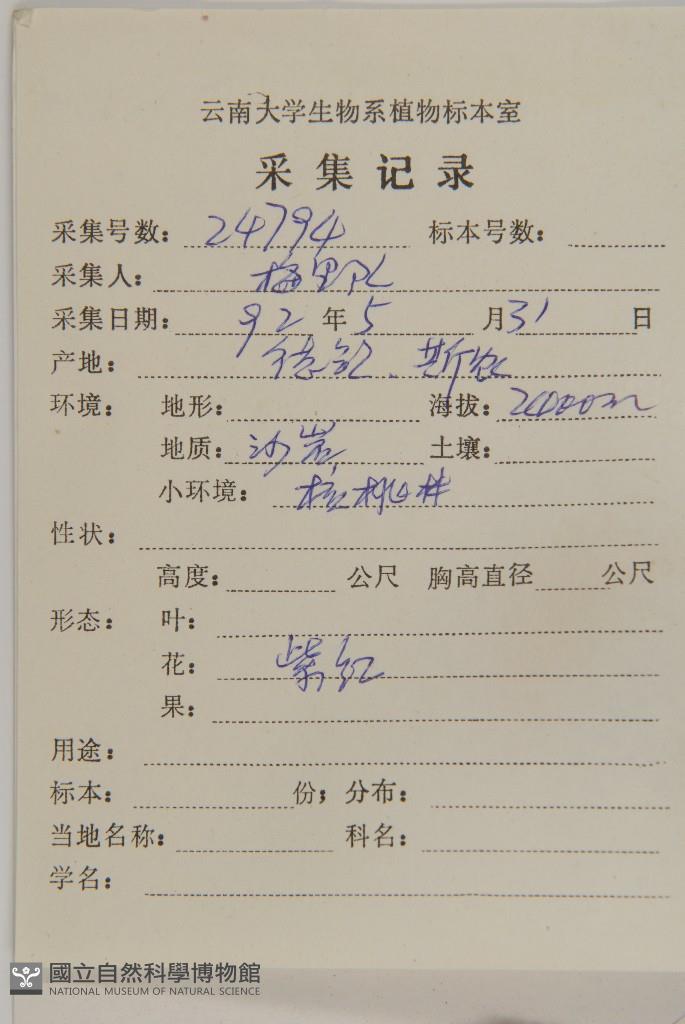 云南大学生物系植物标本室
采集记录
采集号数： 24794 标本号数：
采集人： 梅野队
采集日期： 92 年 5 月 31 日
产地： 德钦、斯农
环境： 地形： 海拔： 2400m
地质： 沙岩 土壤：
小环境： 核桃林
性状：
高度： 公尺 胸高直径 公尺
形态： 叶：
花： 紫红
果：
用途：
标本： 份； 分布：
当地名称： 科名：
学名：
國立自然科學博物館
NATIONAL MUSEUM OF NATURAL SCIENCE